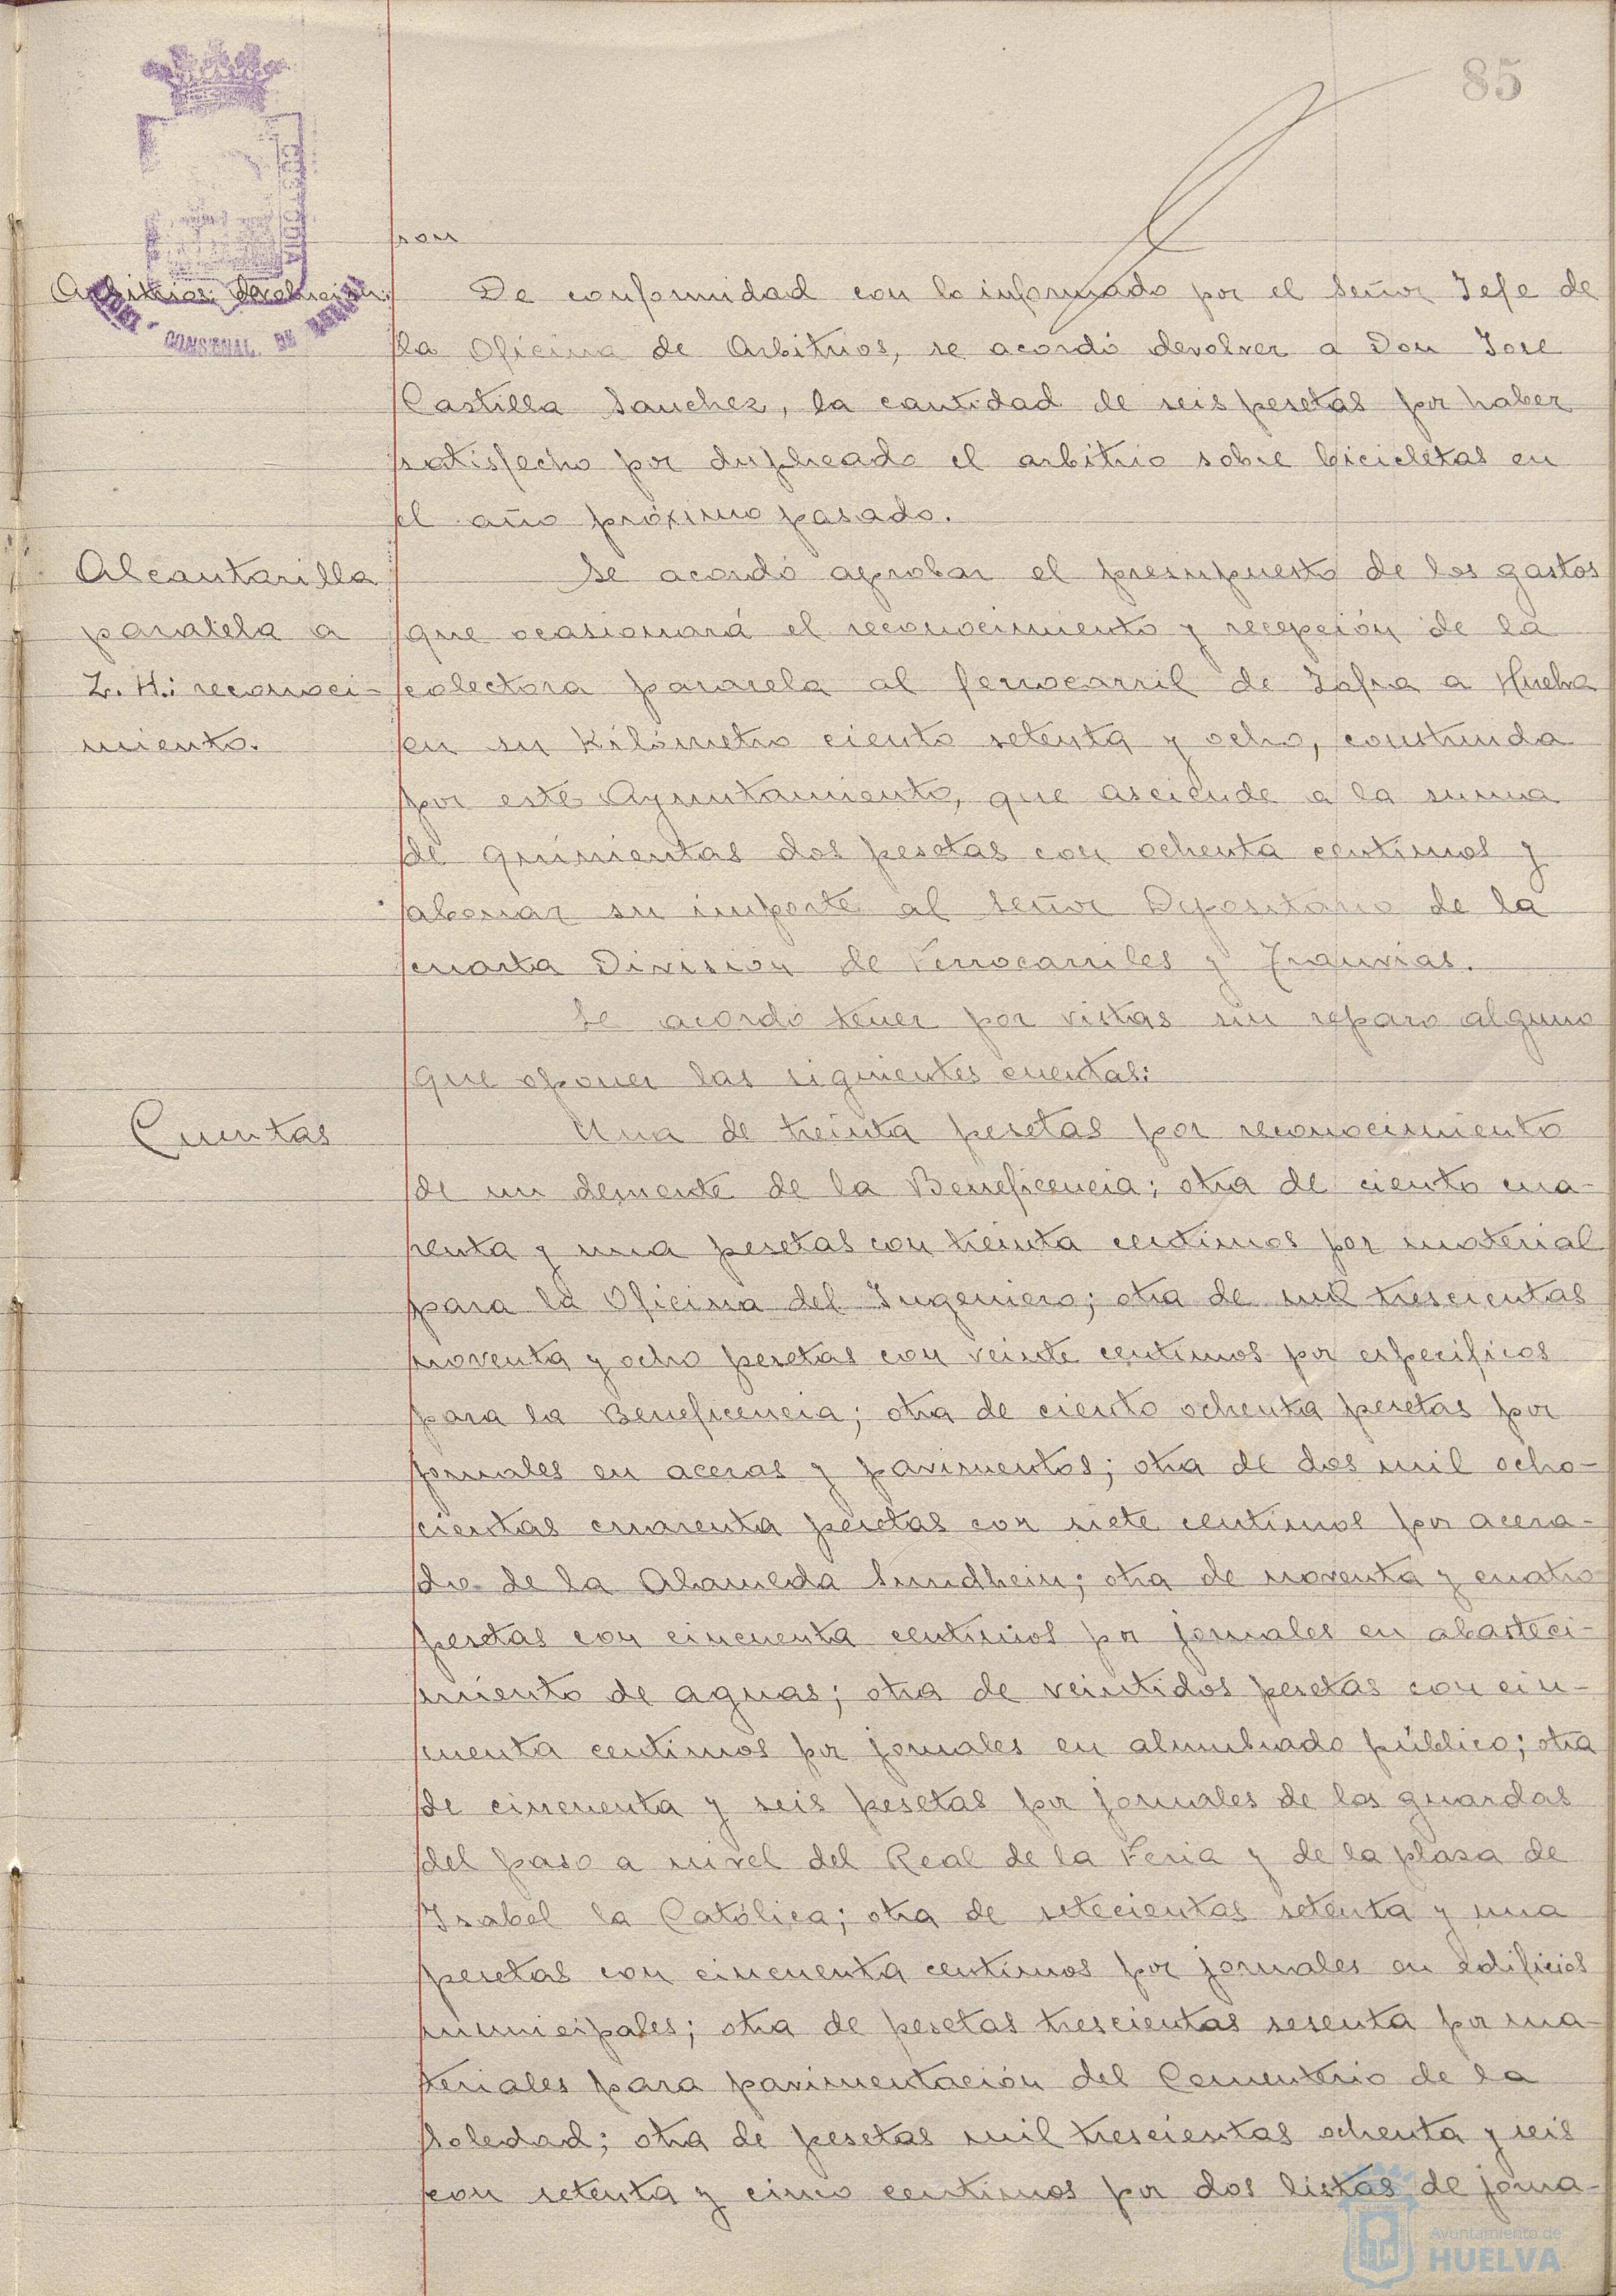 85
son
Arbitrios: devolución.
De conformidad con lo informado por el Señor Jefe de
la Oficina de Arbitrios, se acordó devolver a Don Jose
Castilla Sanchez, la cantidad de seis pesetas por haber
satisfecho por duplicado el arbitrio sobre bicicletas en
el año próximo pasado.
Alcantarilla
paralela a
Z. H.: reconoci-
miento.
Se acordó aprobar el presupuesto de los gastos
que ocasionará el reconocimiento y recepción de la
colectora pararela al ferrocarril de Zafra a Huelva
en su Kilómetro ciento setenta y ocho, construida
por este Ayuntamiento, que asciende a la suma
de quinientas dos pesetas con ochenta centimos y
abonar su importe al Señor Depositario de la
cuarta Division de Ferrocarriles y Tranvias.
Se acordó tener por vistas sin reparo alguno
que oponer las siguientes cuentas:
Cuentas
Una de treinta pesetas por reconocimiento
de un demente de la Beneficencia; otra de ciento cua-
renta y una pesetas con treinta centimos por material
para la Oficina del Ingeniero; otra de mil trescientas
noventa y ocho pesetas con veinte centimos por especificos
para la Beneficencia; otra de ciento ochenta pesetas por
jornales en aceras y pavimentos; otra de dos mil ocho-
cientas cuarenta pesetas con siete centimos por acera-
do de la Alameda Sundhein; otra de noventa y cuatro
pesetas con cincuenta centimos por jornales en abasteci-
miento de aguas; otra de veintidos pesetas con cin-
cuenta centimos por jornales en alumbrado público; otra
de cincuenta y seis pesetas por jornales de los guardas
del paso a nivel del Real de la Feria y de la plaza de
Isabel la Católica; otra de setecientas setenta y una
pesetas con cincuenta centimos por jornales en edificios
municipales; otra de pesetas trescientas sesenta por ma-
teriales para pavimentación del Cementerio de la
Soledad; otra de pesetas mil trescientas ochenta y seis
con setenta y cinco centimos por dos listas de jorna-
Ayuntamiento de
HUELVA